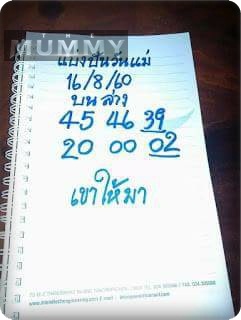 THE
MUMMY
แบ่งปันวันแม่
16/8/60
บน ล่าง
45 46 39
20 00 02
เขาให้มา